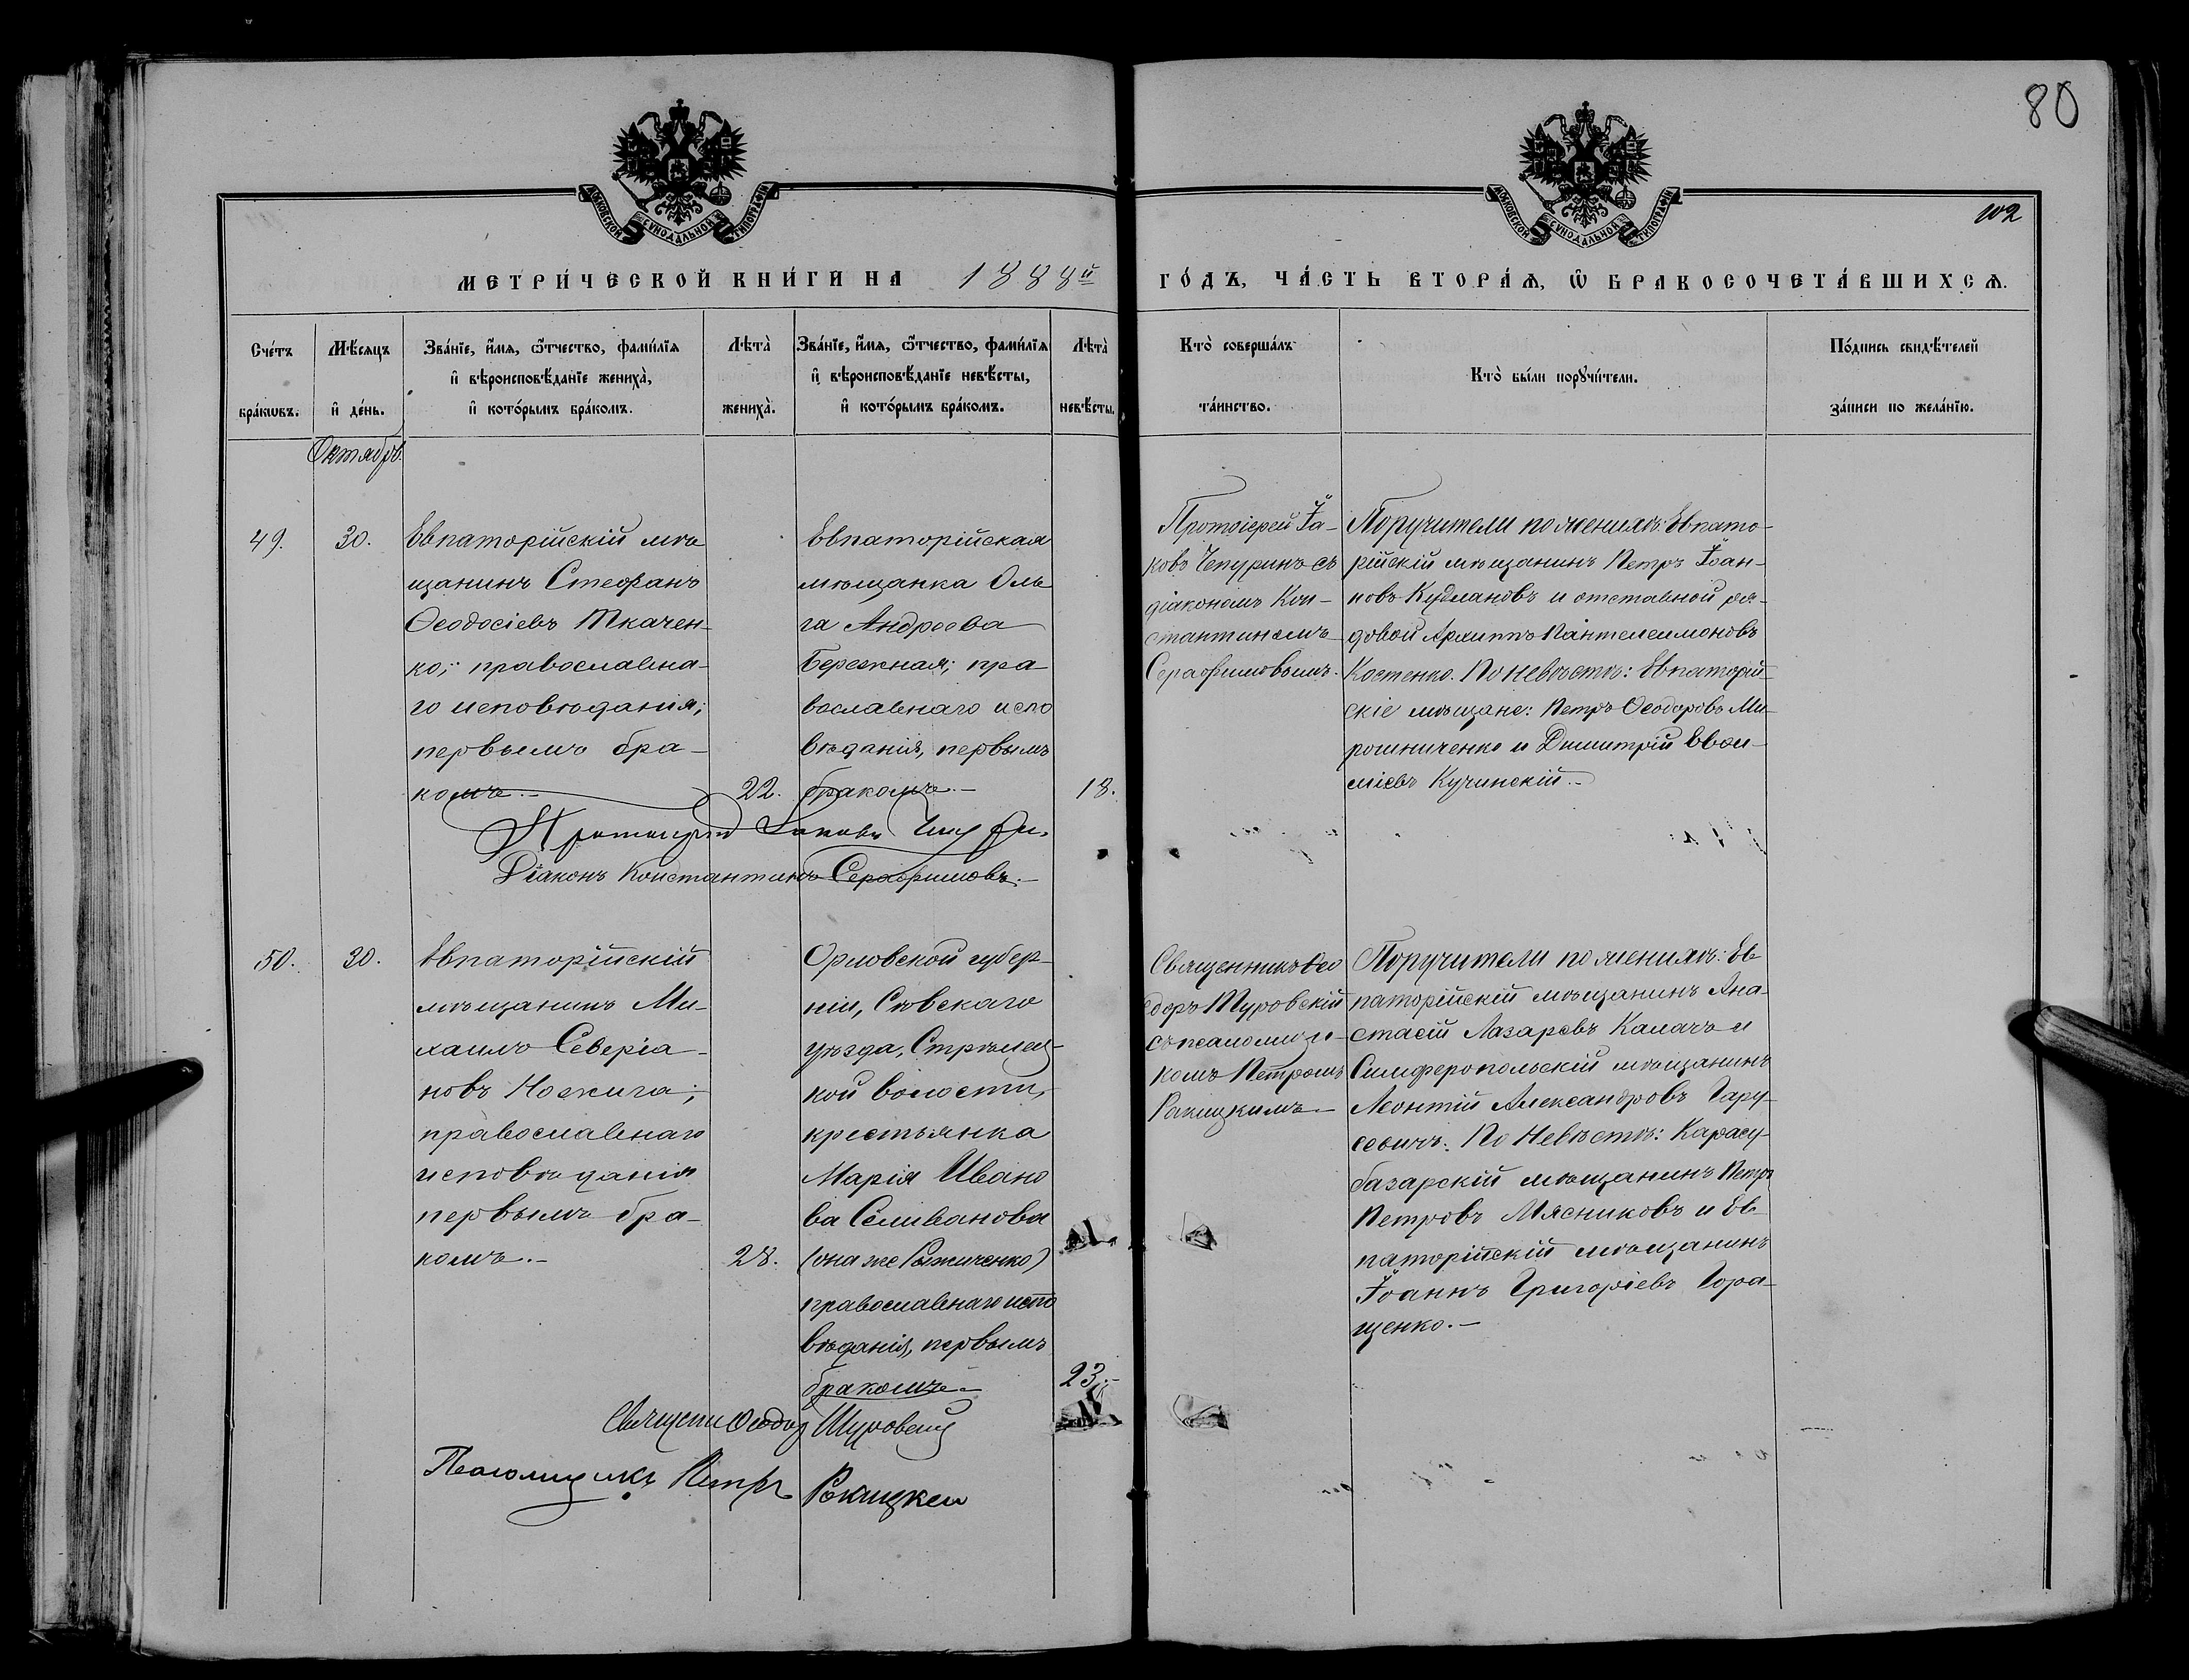 80
МОСКОВСКОЙ СѴНОДАЛЬНОЙ ТИПОГРАФІИ
МОСКОВСКОЙ СѴНОДАЛЬНОЙ ТИПОГРАФІИ
102
МЕТРИ́ЧЕСКОЙ КНИ́ГИ НА 1888й
ГО́ДЪ, ЧА́СТЬ ВТОРА́Ѧ, Ѡ҆ БРАКОСОЧЕТА́ВШИХСѦ.
Сче́тъ
бра́кѡвъ.
Мѣ́сѧцъ
и҆ де́нь.
Зва́нїе, и҆́мѧ, ѻ҆́тчество, фами́лїѧ
и҆ вѣроисповѣ́данїе жениха̀,
и҆ кото́рымъ бра́комъ.
Лѣта̀
жениха̀.
Зва́нїе, и҆́мѧ, ѻ҆́тчество, фами́лїѧ
и҆ вѣроисповѣ́данїе невѣ́сты,
и҆ кото́рымъ бра́комъ.
Лѣта̀
невѣ́сты.
Кто̀ соверша́лъ
та́инство.
Кто̀ бы́ли порꙋчи́тели.
По́дпись свидѣ́телей
за́писи по жела́нїю.
Октябрь.
49.
30.
Евпаторійскій мѣ
щанинъ Стефанъ
Ѳеодосіевъ Ткачен-
ко; православна-
го исповѣданія;
первымъ бра-
комъ.-
22.
Евпаторійская
мѣщанка Оль
га Андреева
Бережная; пра
вославнаго испо
вѣданія, первымъ
бракомъ.-
18.
Протоіерей Іа-
ковъ Чепуринъ съ
діакономъ Кон-
стантиномъ
Серафимовымъ.
Поручители по женихѣ: Евпато-
рійскій мѣщанинъ Петръ Іоан-
новъ Кудлановъ и отставной ря-
довой Архиппъ Пантелеимоновъ
Костенко. По невѣстѣ: Евпаторій-
скіе мѣщане: Петръ Ѳеодоровъ Ми-
рошниченко и Димитрій Евѳи-
міевъ Кучинскій.-
Протоіерей Іаковъ Чепуринъ
Діаконъ Константинъ Серафимовъ.-
50.
30.
Евпаторійскій
мѣщанинъ Ми-
хаилъ Северіа-
новъ Ножига;
православнаго
исповѣданія
первымъ бра-
комъ.-
28.
Орловской губер-
ніи, Сѣвскаго
уѣзда, Стрѣлец-
кой волости,
крестьянка
Марія Ивано
ва Селиванова
(она же Рыжиченко)
православнаго испо
вѣданія, первымъ
бракомъ.-
23.-
Священникъ Ѳео
доръ Туровскій
съ псаломщи-
комъ Петромъ
Ракицкимъ.-
Поручители по женихѣ: Ев
паторійскій мѣщанинъ Ана-
стасій Лазаревъ Калачъ и
Симферопольскій мѣщанинъ
Леонтій Александровъ Гару-
севичъ. По невѣстѣ: Карасу-
базарскій мѣщанинъ Петръ
Петровъ Мясниковъ и Ев-
паторійскій мѣщанинъ
Іоаннъ Григоріевъ Гора-
щенко.-
Священ Ѳеодор Туровскій
Псаломщикъ Петръ Ракицкій